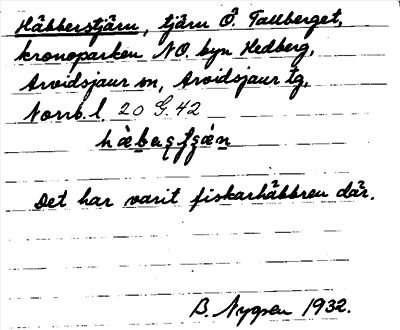 Håbberstjärn, tjärn Ö. Tallberget,
kronoparken NO byn Hedberg,
Arvidsjaur sn, Arvidsjaur tg,
Norrb. l. 20 G. 42
Det har varit fiskarhåbbren där.
B. Nygren 1932.